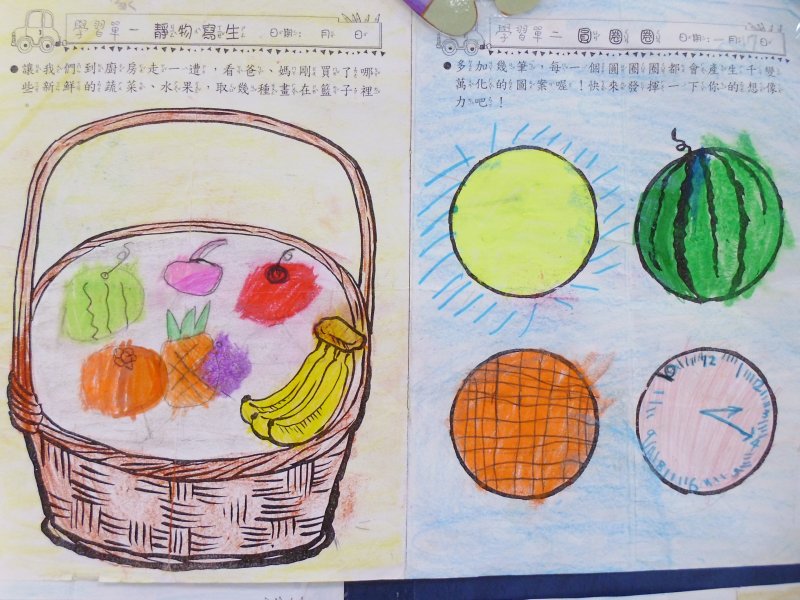 學習單一 靜物寫生 日期： 月 日
●讓我們到廚房走一遭，看爸、媽剛買了哪
些新鮮的蔬菜、水果，取幾種畫在籃子裡
學習單二 圓圈圈 日期：一月17日
●多加幾筆，每一個圓圈圈都會產生千變
萬化的圖案喔！快來發揮一下你的想像
力吧！
12
6